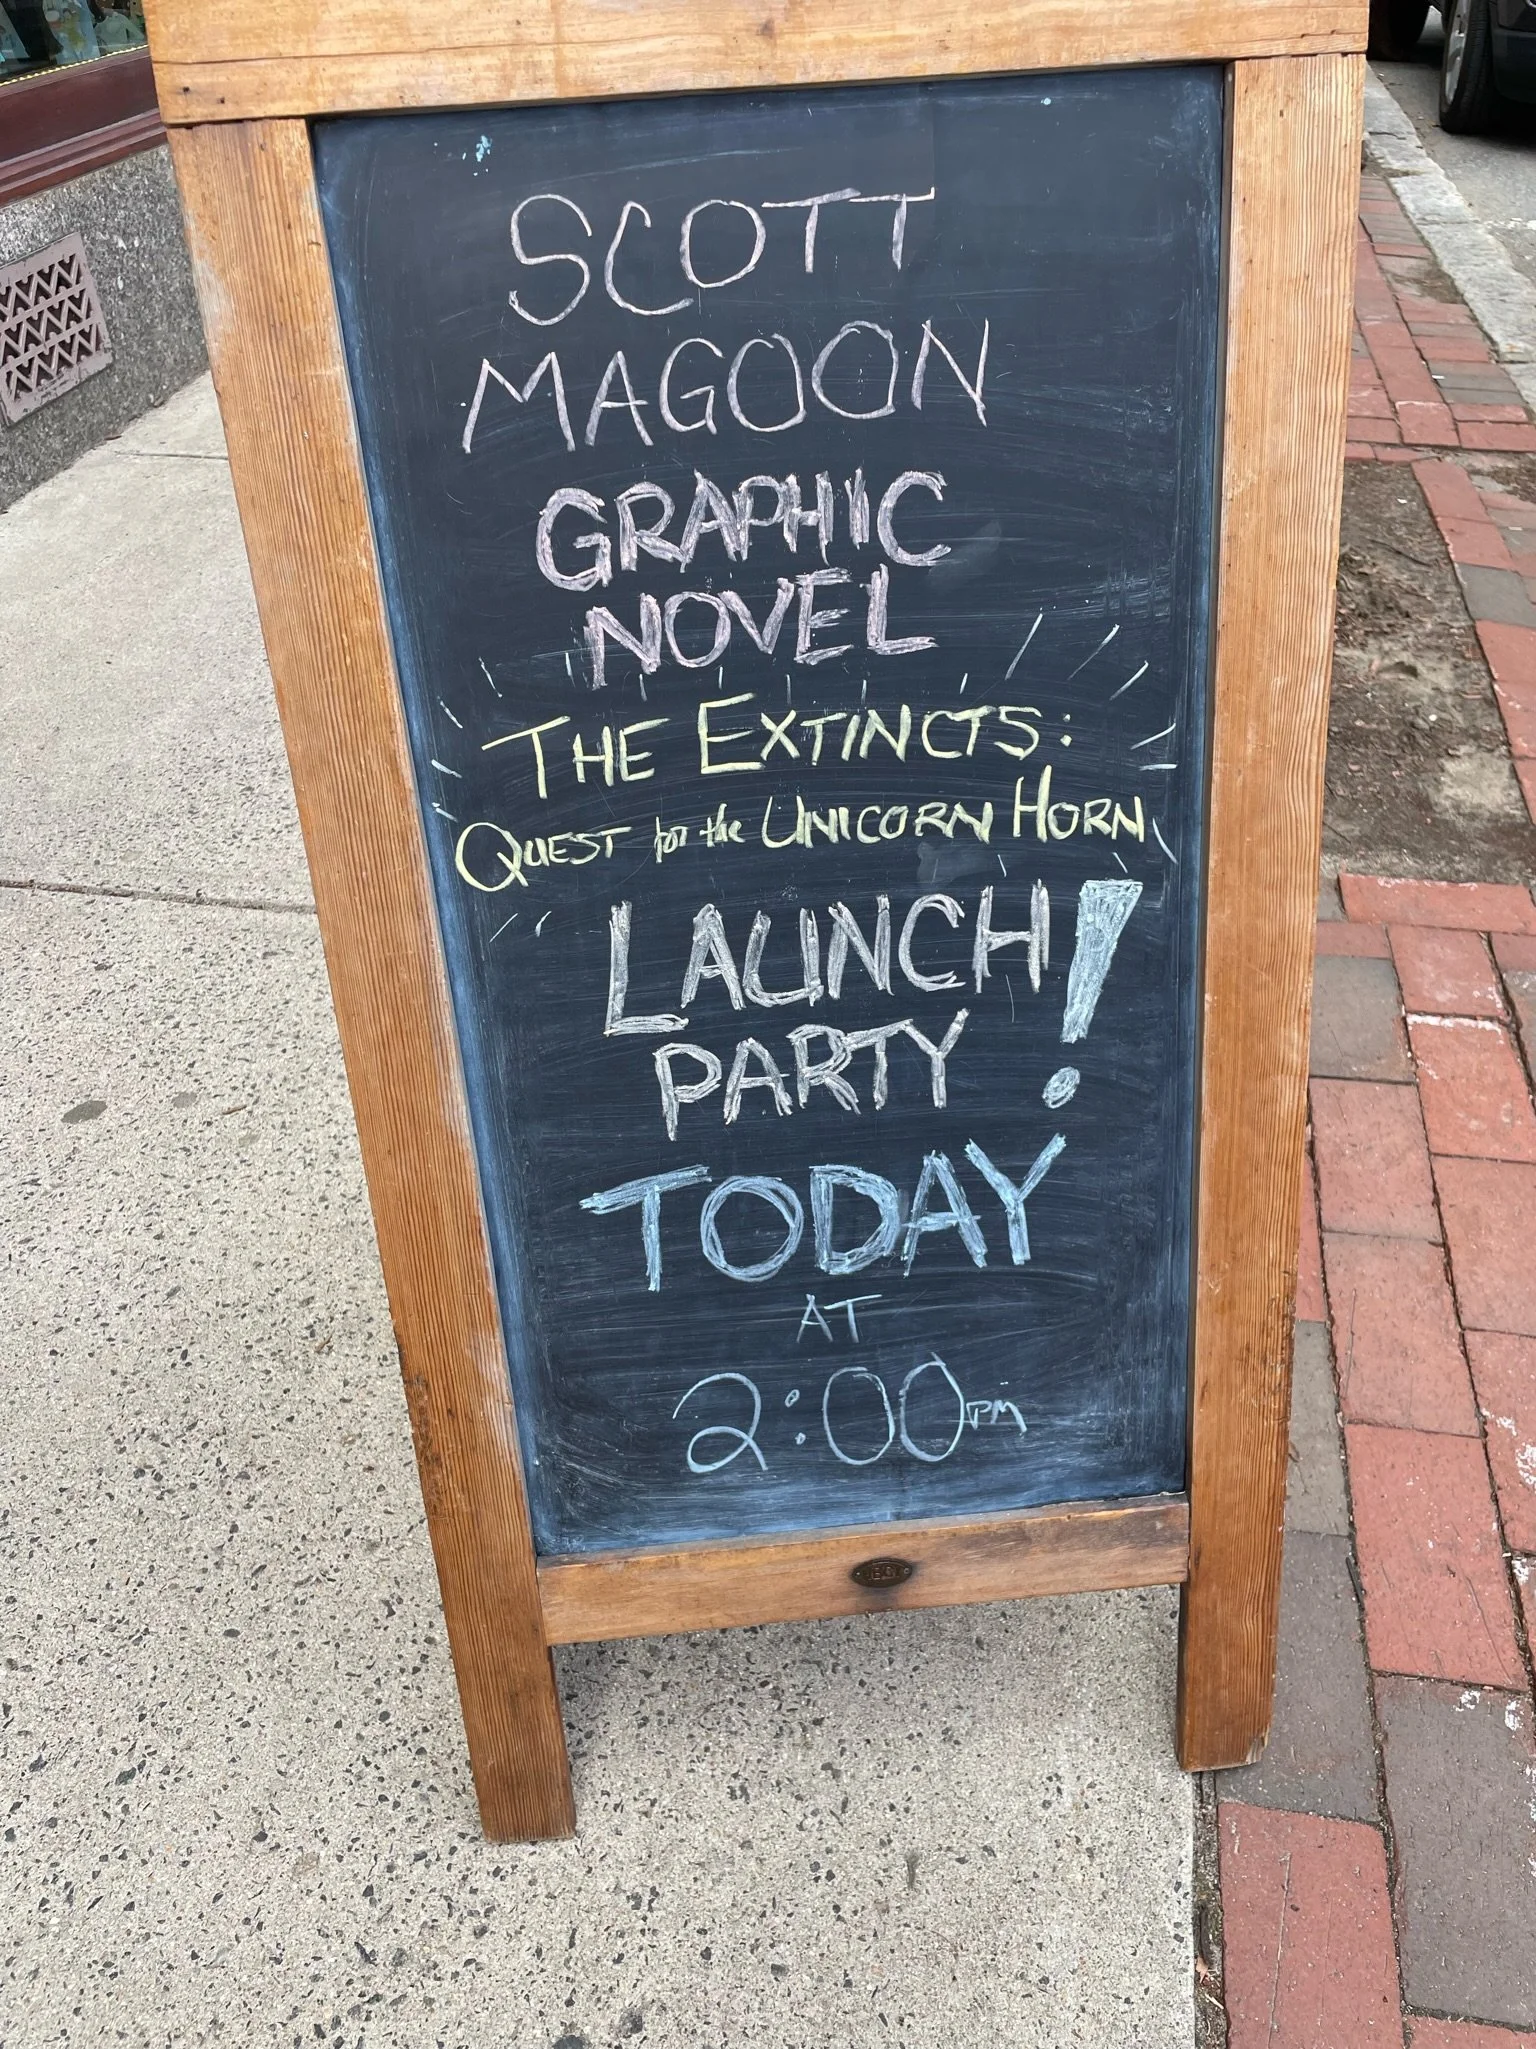 SCOTT
MAGOON
GRAPHIC
NOVEL
THE EXTINCTS:
QUEST for the UNICORN HORN
LAUNCH
PARTY!
TODAY
AT
2:00PM